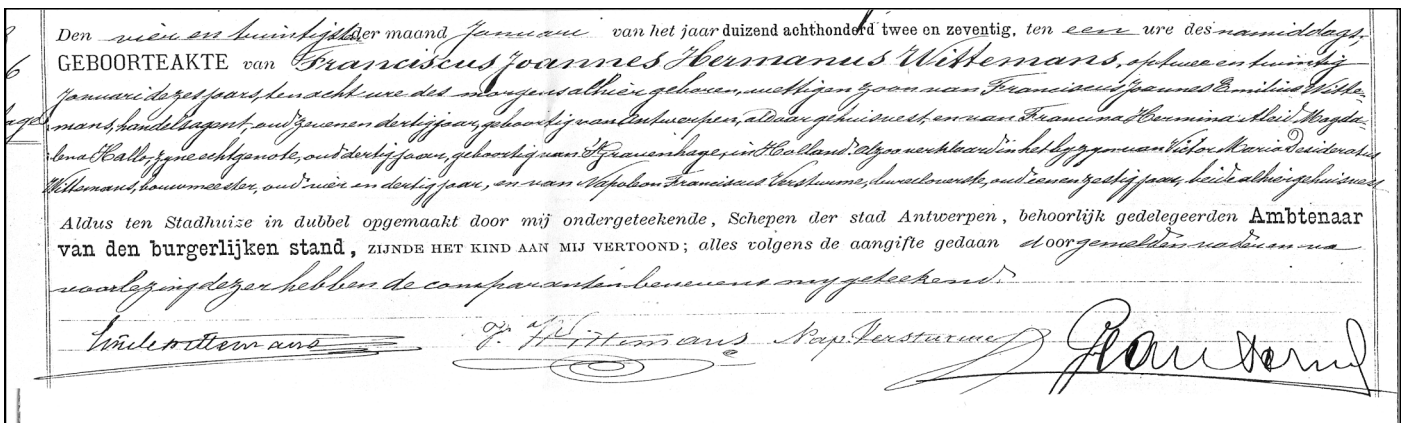 Den vier en twintigste der maand Januari van het jaar duizend achthonderd twee en zeventig, ten een ure des namiddags,
6 GEBOORTEAKTE van Franciscus Joannes Hermanus Wittemans, op twee en twintig
Januari dezes jaars, ten acht ure des morgens alhier geboren, wettigen zoon van Franciscus Joannes Emilius Witte-
mans, handelsagent, oud zeven en dertig jaar, geboortig van Antwerpen, aldaar gehuisvest, en van Francina Hermina Aleid Magda-
lena Hallo, zyne echtgenote, oud dertig jaar, geboortig van S'Gravenhage, in Holland: alzoo verklaard in het byzyn van Victor Maria Desideratus
Wittemans, bouwmeester, oud vier en dertig jaar, en van Napoleon Franciscus Versturme, bureeloverste, oud eenen zestig jaar, beide alhier gehuisvest
Aldus ten Stadhuize in dubbel opgemaakt door mij ondergeteekende, Schepen der stad Antwerpen, behoorlijk gedelegeerden Ambtenaar
van den burgerlijken stand, ZIJNDE HET KIND AAN MIJ VERTOOND; alles volgens de aangifte gedaan door gemelden vader en na
voorlezing dezer hebben de comparanten benevens my geteekend.
Emile Wittemans Wittemans Nap. Versturme